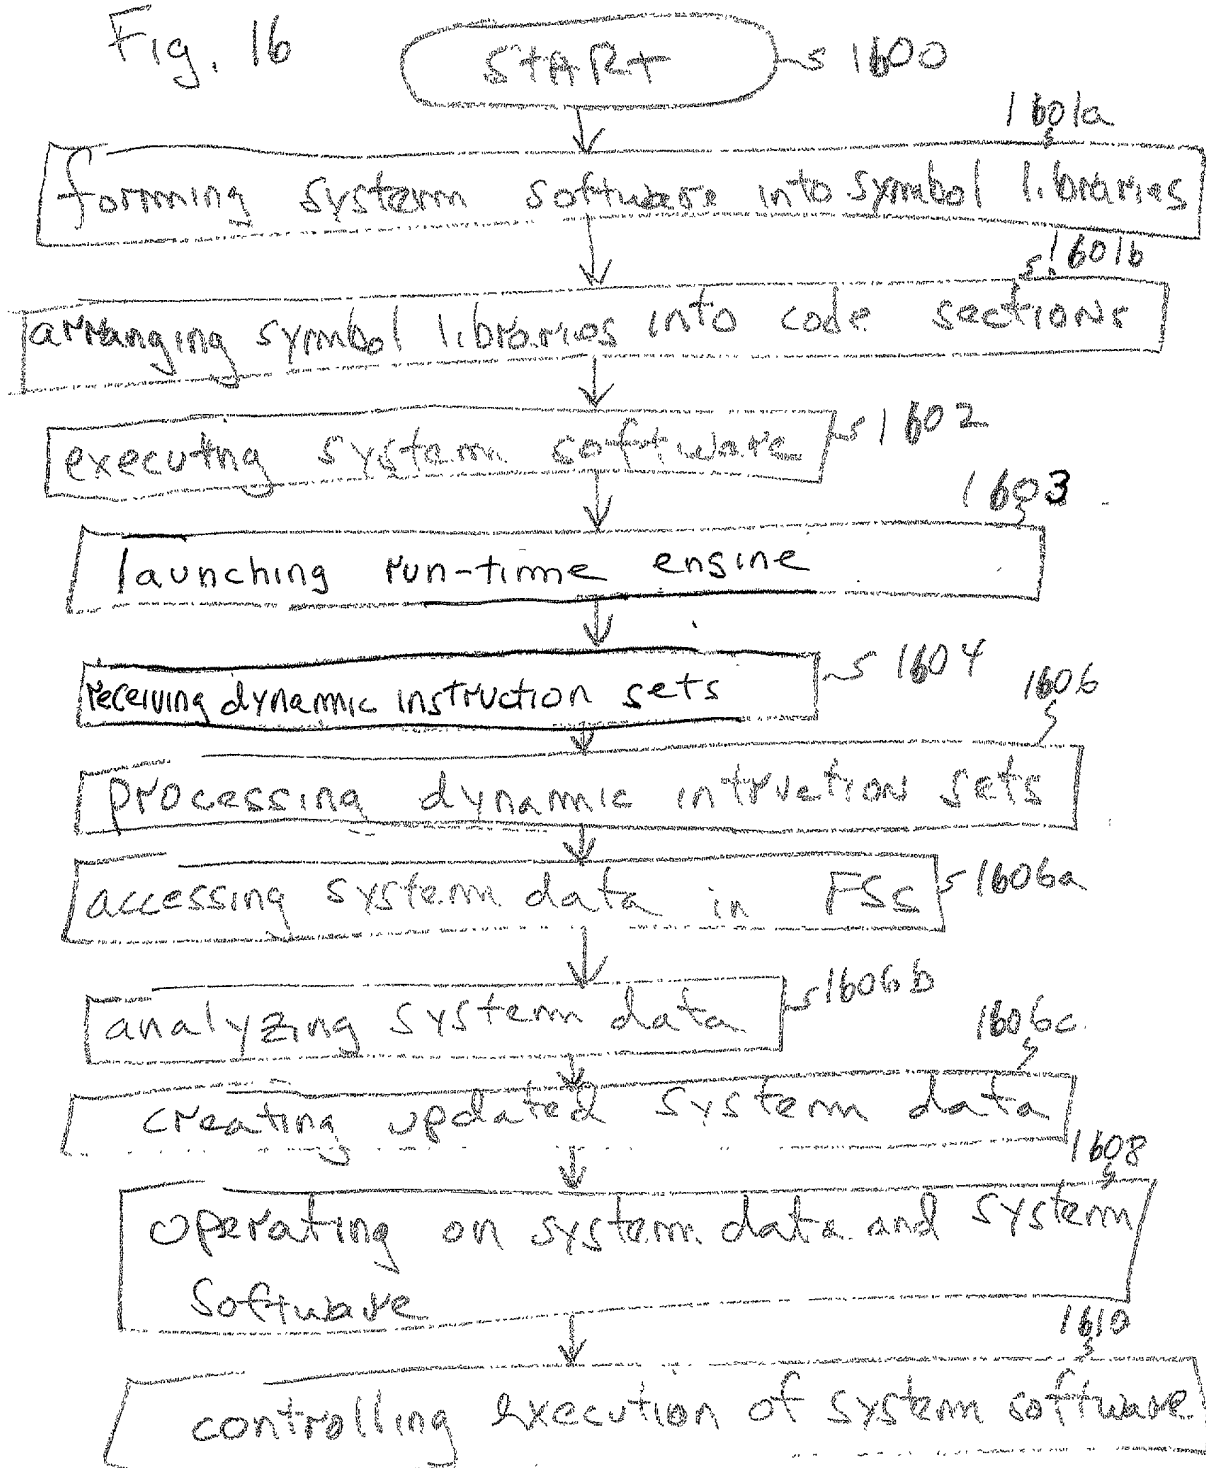 Fig. 16
START 1600
1601a
forming system software into symbol libraries
1601b
arranging symbol libraries into code sections
executng system software 1602
1603
launching run-time engine
receiving dynamic instruction sets 1604
1606
processing dynamic intruction sets
accessing system data in FSs 1606a
analyzing system data 1606b
1606c
creating updated system data
1608
operating on system data and system
software
1610
controlling execution of system software